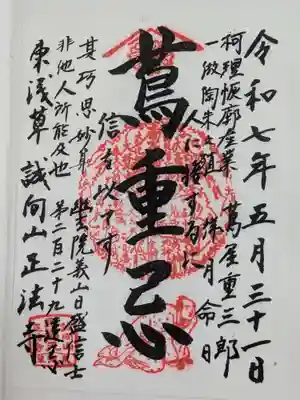 令和七年五月三十一日
柯理恢廓産業 蔦屋重三郎
一倣陶朱之殖 祥月命日
人に接するに
蔦重忌
信を以てす
其巧思妙算 幽玄院義山日盛信士
非他人所能及也 第二百二十九遠忌
東浅草 誠向山正法寺